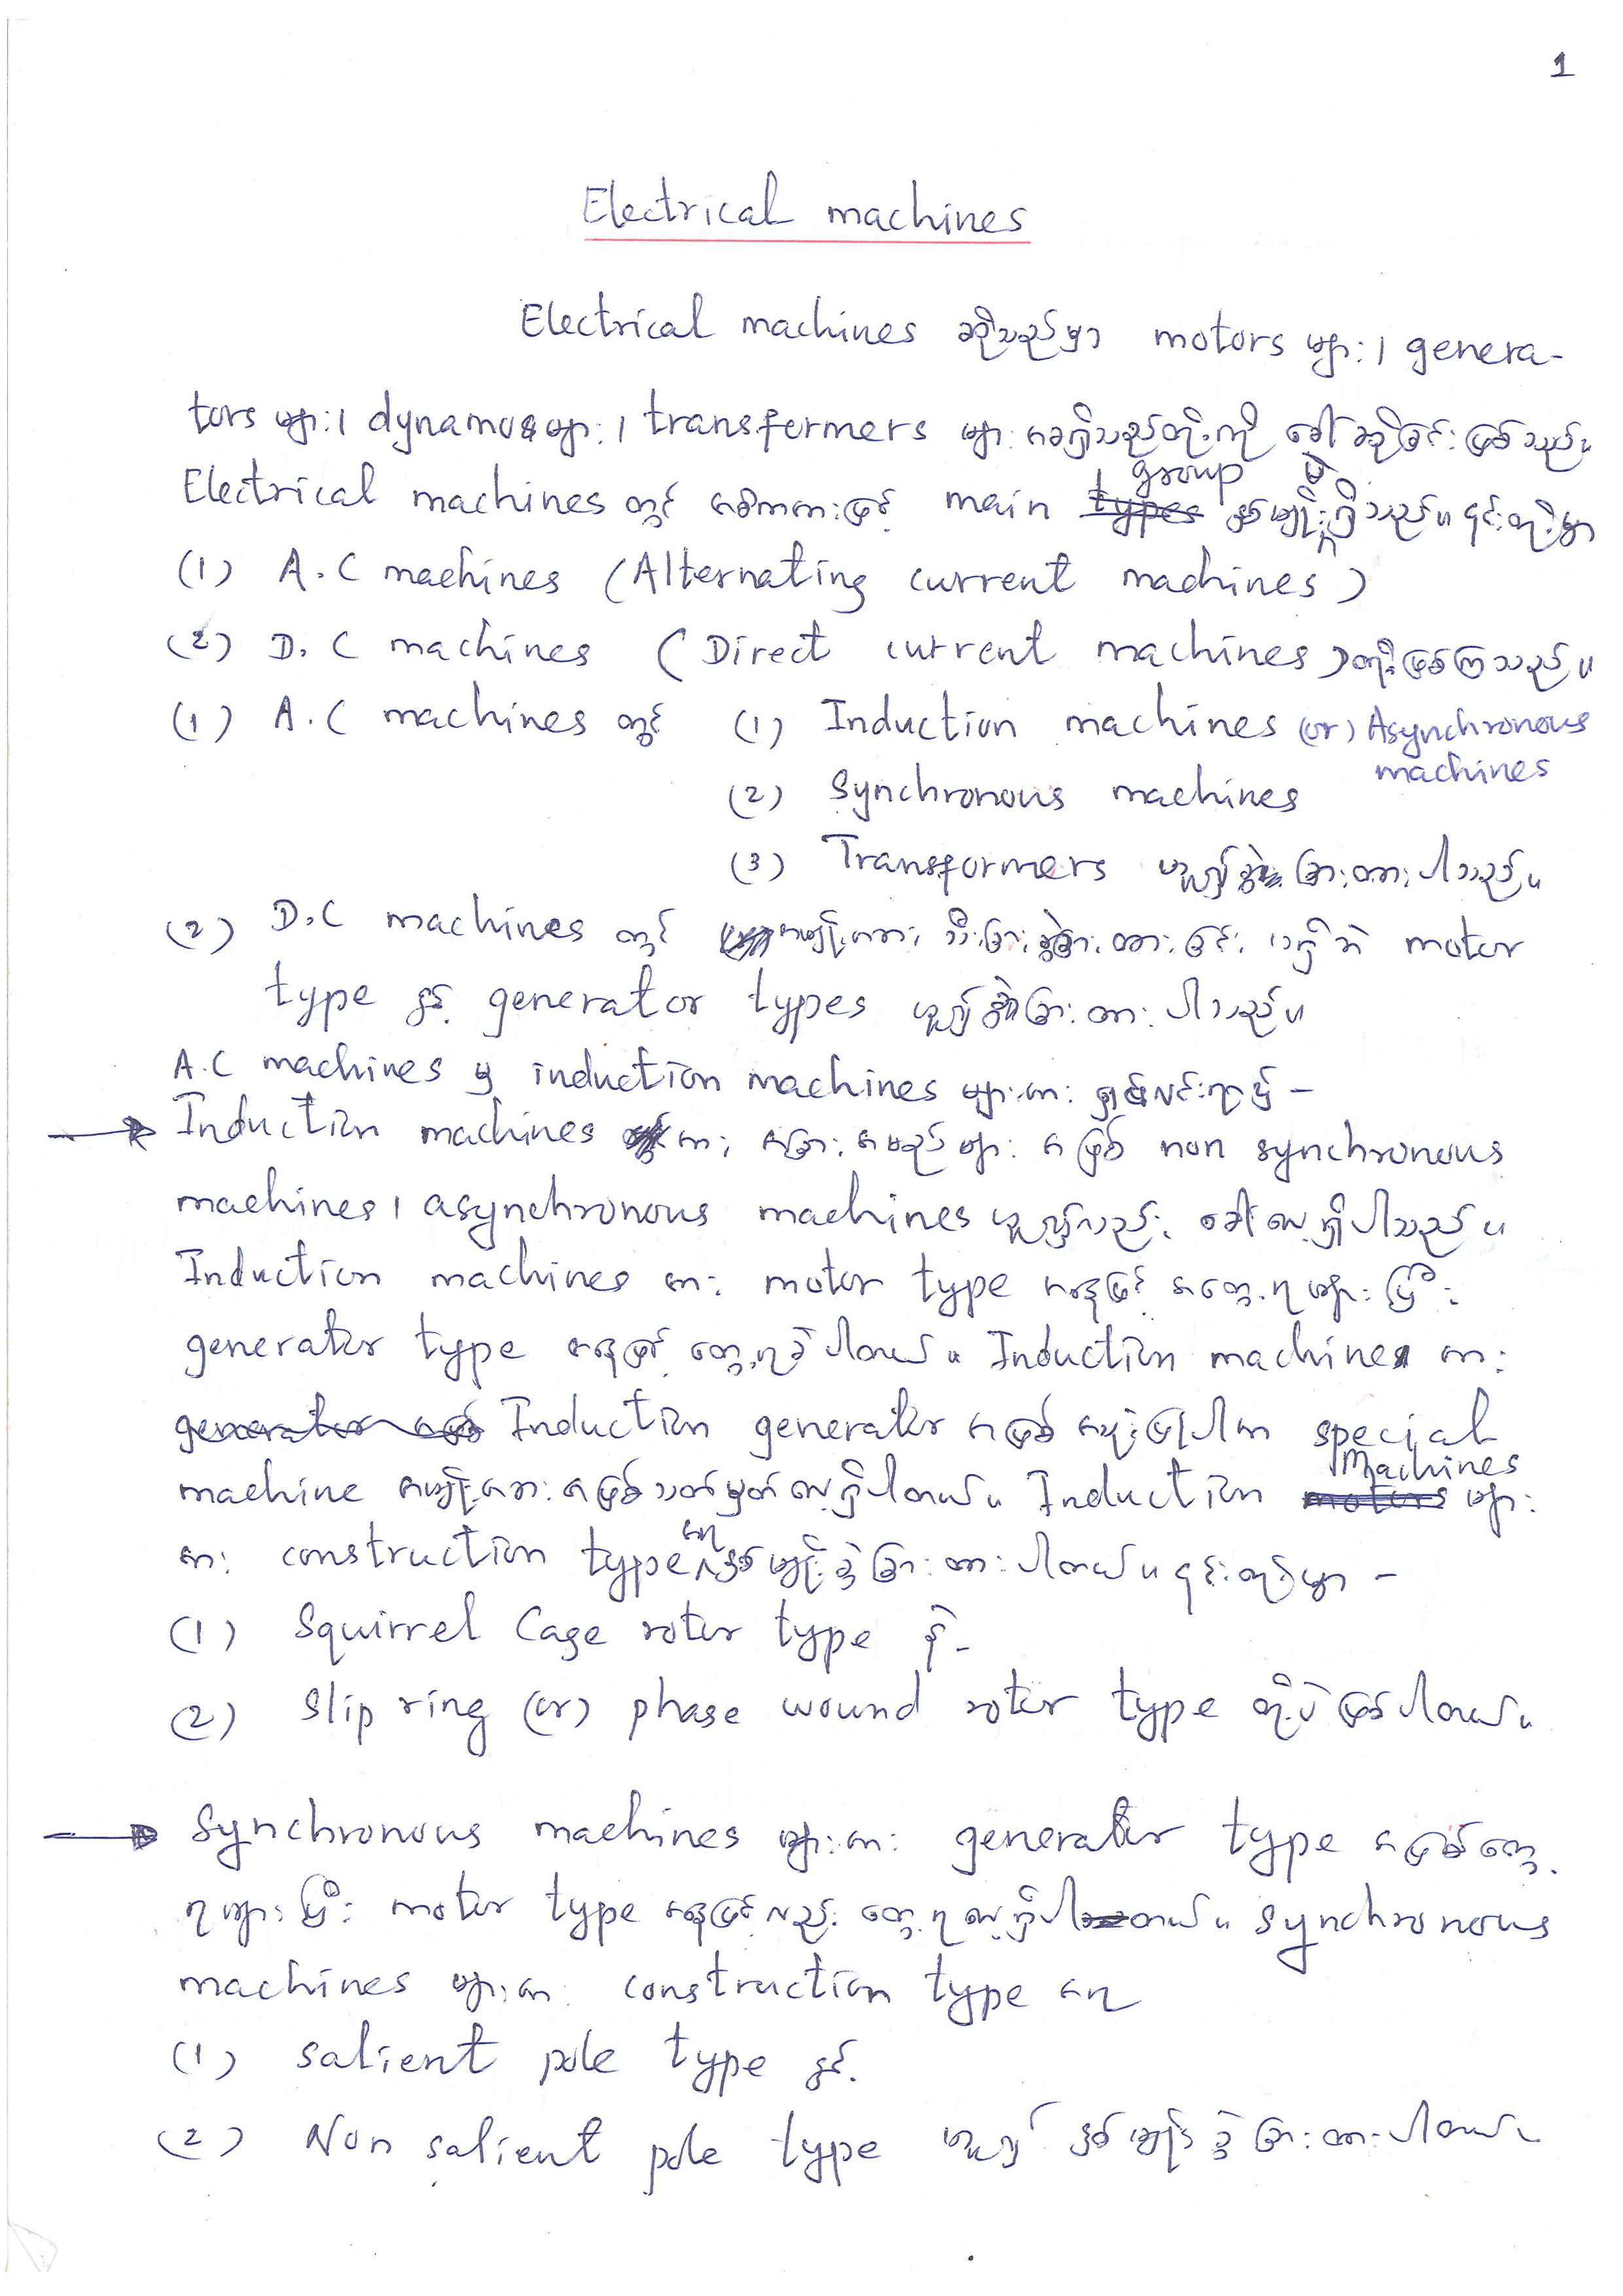 1
Electrical machines
Electrical machines ဆိုသည်မှာ motors များ၊ genera-
tors များ၊ dynamos များ၊ transformers များ စသည်တို့ကို ခေါ်ဆိုခြင်း ဖြစ်သည်။
Electrical machines တွင် အဓိကအားဖြင့် main group နှစ်မျိုး ရှိသည်။ ၎င်းတို့မှာ
(1) A.C machines (Alternating current machines)
(2) D.C machines (Direct current machines) တို့ဖြစ်ကြသည်။
(1) A.C machines တွင် (1) Induction machines (or) Asynchronous
machines
(2) Synchronous machines
(3) Transformers ဟူ၍ ခွဲခြားထားပါသည်။
(2) D.C machines တွင် အမျိုးအစား သီးခြား ခွဲခြားထားခြင်း မရှိဘဲ motor
type နှင့် generator types ဟူ၍ ခွဲခြားထားပါသည်။
A.C machines မှ induction machines များအား ရှင်းလင်းရာ၌ -
Induction machines အား အခြားအမည်များ အဖြစ် non synchronous
machines၊ asynchronous machines ဟူ၍လည်း ခေါ်လေ့ရှိပါသည်။
Induction machines အား motor type အနေဖြင့် အတွေ့ရများပြီး
generator type အနေဖြင့် တွေ့ရခဲပါတယ်။ Induction machines အား
Induction generator အဖြစ် အသုံးပြုပါက special
machine အမျိုးအစား အဖြစ် သတ်မှတ်လေ့ရှိပါတယ်။ Induction machines များ
အား construction type အရ နှစ်မျိုး ခွဲခြားထားပါတယ်။ ၎င်းတို့မှာ -
(1) Squirrel Cage rotor type နဲ့-
(2) Slip ring (or) phase wound rotor type တို့ပဲ ဖြစ်ပါတယ်။
Synchronous machines များအား generator type အဖြစ်တွေ့
ရများပြီး motor type အနေဖြင့်လည်း တွေ့ရလေ့ရှိပါတယ်။ synchronous
machines များအား construction type အရ
(1) salient pole type နှင့်
(2) Non salient pole type ဟူ၍ နှစ်မျိုး ခွဲခြားထားပါတယ်။